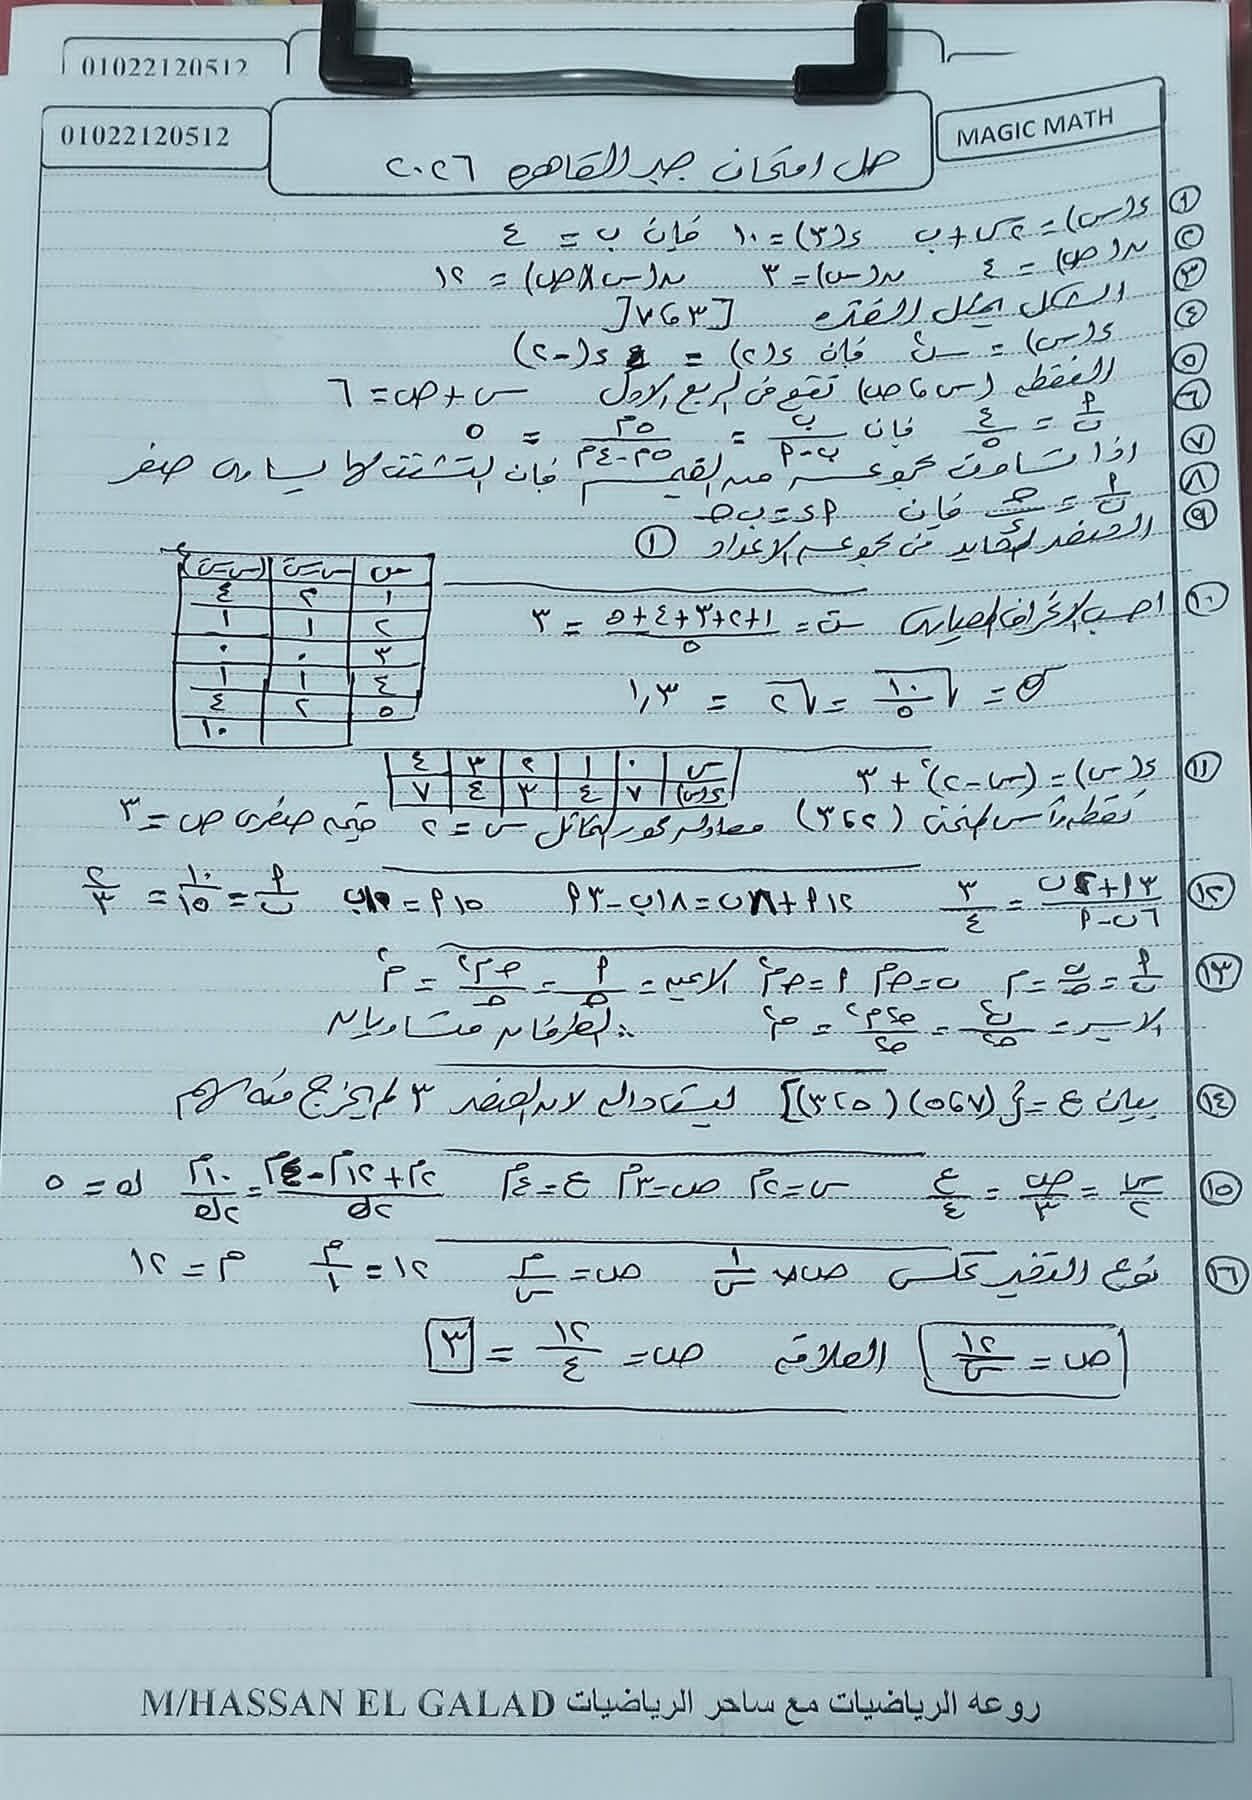 01022120512
01022120512
MAGIC MATH
حل امتحان جبر القاهرة ٢٠٢٦
① د(س) = ٢س + ب د(٣) = ١٠ فإن ب = ٤
② ن(ص) = ٤ ن(س) = ٣ ن(س×ص) = ١٢
③ الشكل يمثل الفترة [٣،٧[
④ د(س) = س٢ فإن د(٢) = د(-٢)
⑤ النقطة (س،ص) تقع في الربع الأول س + ص = ٦
⑥ أ/ب = ٤/٥ فإن ب/(ب-أ) = ٥م/(٥م-٤م) = ٥
⑦ إذا تساوت مجموعة من القيم فإن التشتت لها يساوى صفر
⑧ أ/ب = ج/د فإن أد = ب ج
⑨ العنصر المحايد في مجموعة الأعداد ①
⑩ احسب الانحراف المعيارى س = (١+٢+٣+٤+٥)/٥ = ٣
س س-س (س-س)٢
١ ٢ ٤
٢ ١ ١
٣ ٠ ٠
٤ ١ ١
٥ ٢ ٤
١٠
σ = √(١٠/٥) = √٢ = ١,٣
⑪ د(س) = (س-٢)٢ + ٣
س ٠ ١ ٢ ٣ ٤
د(س) ٧ ٤ ٣ ٤ ٧
نقطة رأس المنحنى (٢،٣) معادلة محور التماثل س = ٢ قيمة صغرى ص = ٣
⑫ (٣أ+٢ب)/(٦ب-أ) = ٣/٤ ١٢أ+٨ب = ١٨ب-٣أ ١٥أ = ١٠ب أ/ب = ١٠/١٥ = ٢/٣
⑬ أ/ب = ب/ج = م ب = ج م أ = ج م٢ الأيمن = أ/ج = ج م٢/ج = م٢
الأيسر = ب٢/ج٢ = ج٢م٢/ج٢ = م٢ ∴ الطرفان متساويان
⑭ بيان ع = {(٧،٥)(٥،٣)} ليست دالة لأن العنصر ٣ لم يخرج منه سهم
⑮ س/٢ = ص/٣ = ع/٤ س = ٢م ص = ٣م ع = ٤م (٢م+١٢م-٤م)/٢ك = ١٠م/٢ك ك = ٥
⑯ نوع التغير عكسى ص ∝ ١/س ص = م/س ١٢ = م/١ م = ١٢
ص = ١٢/س العلاقة ص = ١٢/٤ = ٣
روعه الرياضيات مع ساحر الرياضيات M/HASSAN EL GALAD